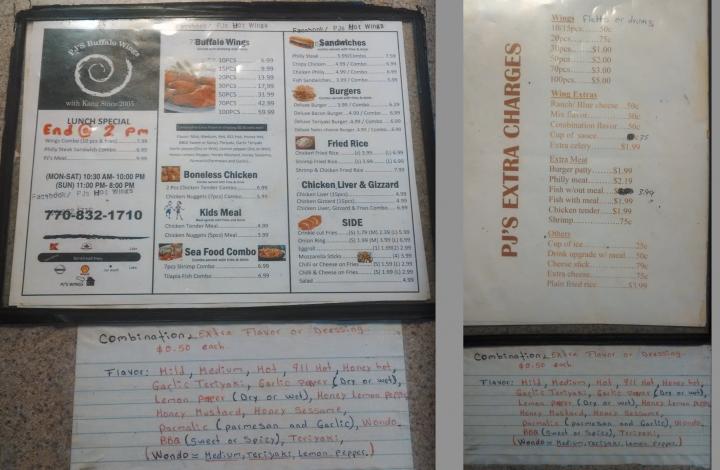 Facebook/ PJs Hot Wings
PJ'S Buffalo Wings
with Kang Since 2005
LUNCH SPECIAL
End @ 2 pm
Wings Combo (10 pcs & fries)
Philly Steak Sandwich Combo
PJ's Meal
(MON-SAT) 10:30 AM- 10:00 PM
(SUN) 11:00 PM- 8:00 PM
Facebook/ PJs Hot Wings
770-832-1710
PJ'S WINGS
Buffalo Wings
10PCS 6.99
15PCS 9.99
20PCS 13.99
30PCS 17.99
50PCS 31.99
70PCS 42.99
100PCS 59.99
Boneless Chicken
2 Pcs Chicken Tender Combo 6.99
Chicken Nuggets (7pcs) Combo 5.99
Kids Meal
Chicken Tender Meal 4.99
Chicken Nuggets (5pcs) Meal 3.99
Sea Food Combo
7pcs Shrimp Combo 6.99
Tilapia Fish Combo 6.99
Facebook/ PJs Hot Wings
Sandwiches
Philly Steak
Crispy Chicken 4.99 / Combo 6.99
Chicken Philly 4.99 / Combo 6.99
Fish Sandwiches
Burgers
Deluxe Burger
Deluxe Bacon Burger
Deluxe Teriyaki Burger
Deluxe Swiss cheese Burger
Fried Rice
Chicken Fried Rice
Shrimp Fried Rice
Shrimp & Chicken Fried Rice 7.99
Chicken Liver & Gizzard
Chicken Liver (15pcs) 4.99
Chicken Gizzard (15pcs) 4.99
Chicken Liver, Gizzard & Fries Combo 6.99
SIDE
Crinkle cut Fries
Onion Ring
Eggroll
Mozzarella Sticks
Chilli or Cheese on Fries
Chilli & Cheese on Fries
Salad 4.99
Combination, Extra Flavor or Dressing
$0.50 each.
Flavor: Mild, Medium, Hot, 911 Hot, Honey hot,
Garlic Teriyaki, Garlic paper (Dry or wet),
Lemon paper (Dry or wet), Honey Lemon Pepper,
Honey Mustard, Honey Sessame,
Parmatic (parmesan and Garlic), Wondo,
BBQ (sweet or Spicy), Teriyaki,
(Wondo = Medium, Teriyaki, Lemon Pepper.)
PJ'S EXTRA CHARGES
Wings Flatts or drums
10/15pcs.....50c
20pcs.....75c
30pcs.....$1.00
50pcs.....$2.00
70pcs.....$3.00
100pcs.....$5.00
Wing Extras
Ranch/ Blue cheese ..50c
Mix flavor.....50c
Combination flavor....50c
Cup of sauce .75
Extra celery.....$1.99
Extra Meat
Burger patty.....$1.99
Philly meat.....$2.19
Fish w/out meal.....$ 3.99
Fish with meal.....$1.99
Chicken tender.....$1.99
Shrimp.....75c
Others
Cup of ice.....25c
Drink upgrade w/ meal....50c
Cheese stick.....79c
Extra cheese.....75c
Plain fried rice.....$3.99
Combination, Extra Flavor or Dressing
$0.50 each.
Flavor: Mild, Medium, Hot, 911 Hot, Honey hot,
Garlic Teriyaki, Garlic paper (Dry or wet),
Lemon paper (Dry or wet), Honey Lemon Pepper,
Honey Mustard, Honey Sessame,
Parmatic (parmesan and Garlic), Wondo,
BBQ (sweet or Spicy), Teriyaki,
(Wondo = Medium, Teriyaki, Lemon Pepper.)